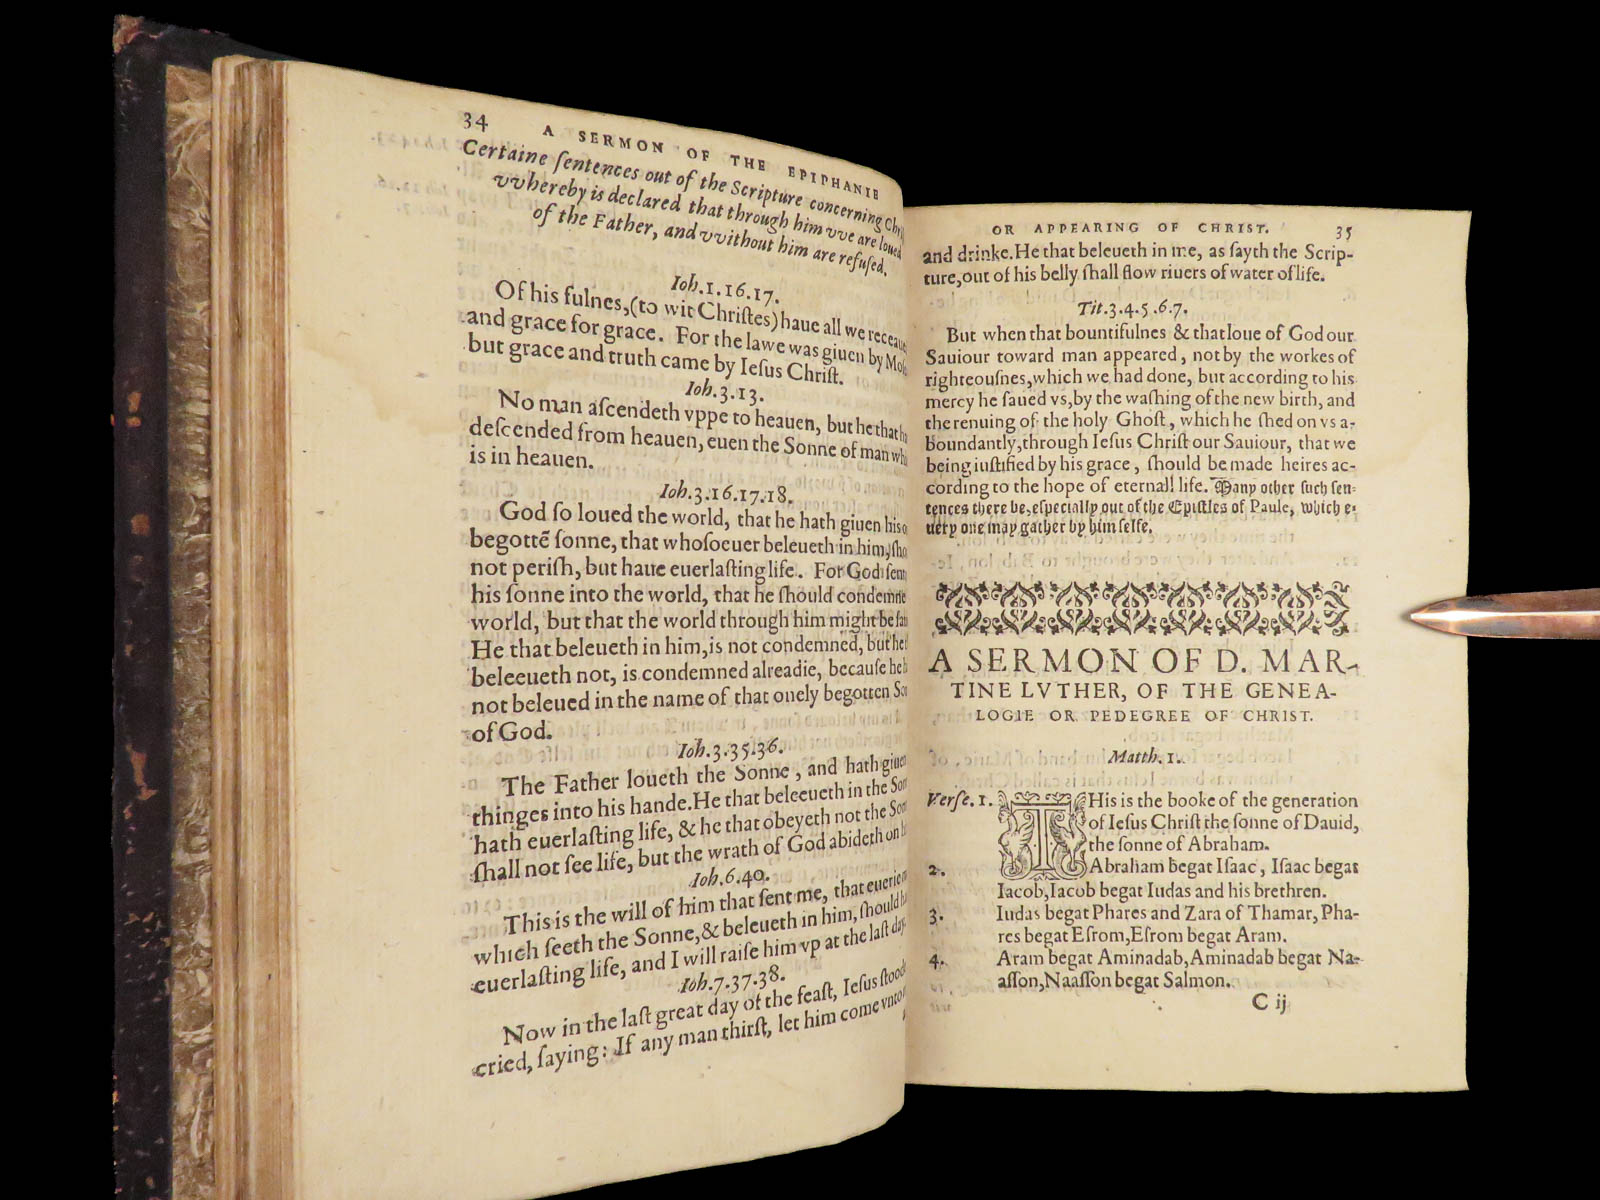 34 A SERMON OF THE EPIPHANIE
Certaine ſentences out of the Scripture concerning Chri
vvhereby is declared that through him vve are loued
of the Father, and vvithout him are refuſed.
Ioh.1.16.17.
Of his fulnes,(to wit Chriſtes) haue all we receaue
and grace for grace. For the lawe was giuen by Moſ
but grace and truth came by Ieſus Chriſt.
Ioh.3.13.
No man aſcendeth vppe to heauen, but he that h
deſcended from heauen, euen the Sonne of man wh
is in heauen.
Ioh.3.16.17.18.
God ſo loued the world, that he hath giuen his o
begottē ſonne, that whoſoeuer beleueth in him, ſho
not periſh, but haue euerlaſting life. For God ſent
his ſonne into the world, that he ſhould condemne
world, but that the world through him might be ſa
He that beleueth in him, is not condemned, but he t
beleeueth not, is condemned alreadie, becauſe he h
not beleued in the name of that onely begotten So
of God.
Ioh.3.35.36.
The Father loueth the Sonne, and hath giuen
thinges into his hande. He that beleeueth in the Son
hath euerlaſting life, & he that obeyeth not the Son
ſhall not ſee life, but the wrath of God abideth on h
Ioh.6.40.
This is the will of him that ſent me, that euerie
which ſeeth the Sonne, & beleueth in him, ſhould h
euerlaſting life, and I will raiſe him vp at the laſt day.
Ioh.7.37.38.
Now in the laſt great day of the feaſt, Ieſus ſtoode
cried, ſaying: If any man thirſt, let him come vnto
OR APPEARING OF CHRIST. 35
and drinke. He that beleueth in me, as ſayth the Scrip-
ture, out of his belly ſhall flow riuers of water of life.
Tit.3.4.5.6.7.
But when that bountifulnes & that loue of God our
Sauiour toward man appeared, not by the workes of
righteouſnes, which we had done, but according to his
mercy he ſaued vs, by the waſhing of the new birth, and
the renuing of the holy Ghoſt, which he ſhed on vs a-
boundantly, through Ieſus Chriſt our Sauiour, that we
being iuſtified by his grace, ſhould be made heires ac-
cording to the hope of eternall life. Many other ſuch ſen-
tences there be, eſpecially out of the Epiſtles of Paule, which e-
uery one may gather by him ſelfe.
A SERMON OF D. MAR-
TINE LVTHER, OF THE GENEA-
LOGIE OR PEDEGREE OF CHRIST.
Matth. 1.
Verſe. 1. THis is the booke of the generation
of Ieſus Chriſt the ſonne of Dauid,
the ſonne of Abraham.
2. Abraham begat Iſaac, Iſaac begat
Iacob, Iacob begat Iudas and his brethren.
3. Iudas begat Phares and Zara of Thamar, Pha-
res begat Eſrom, Eſrom begat Aram.
4. Aram begat Aminadab, Aminadab begat Na-
aſſon, Naaſſon begat Salmon.
C ij